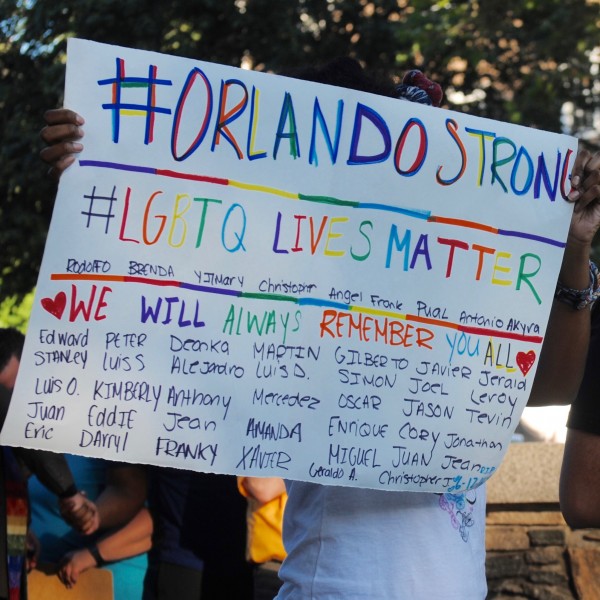 #ORLANDO STRONG
#LGBTQ LIVES MATTER
Rodolfo BRENDA YIlMary Christopher Angel Frank PUAL Antonio AKyra
WE WILL ALWAYS REMEMBER YOU ALL
Edward PETER Deonka MARTIN GILBERTO JAVIER Jerald
STANLEY LUIS S Alejandro LUIS D. SIMON JOEL Leroy
LUIS O. KIMBERLY Anthony Mercedez OSCAR JASON Tevin
Juan EddIE Jean AMANDA ENRIQUE CORY Jonathan
Eric DARRYL FRANKY XAVIER MIGUEL JUAN Jean
Geraldo A. Christopher J